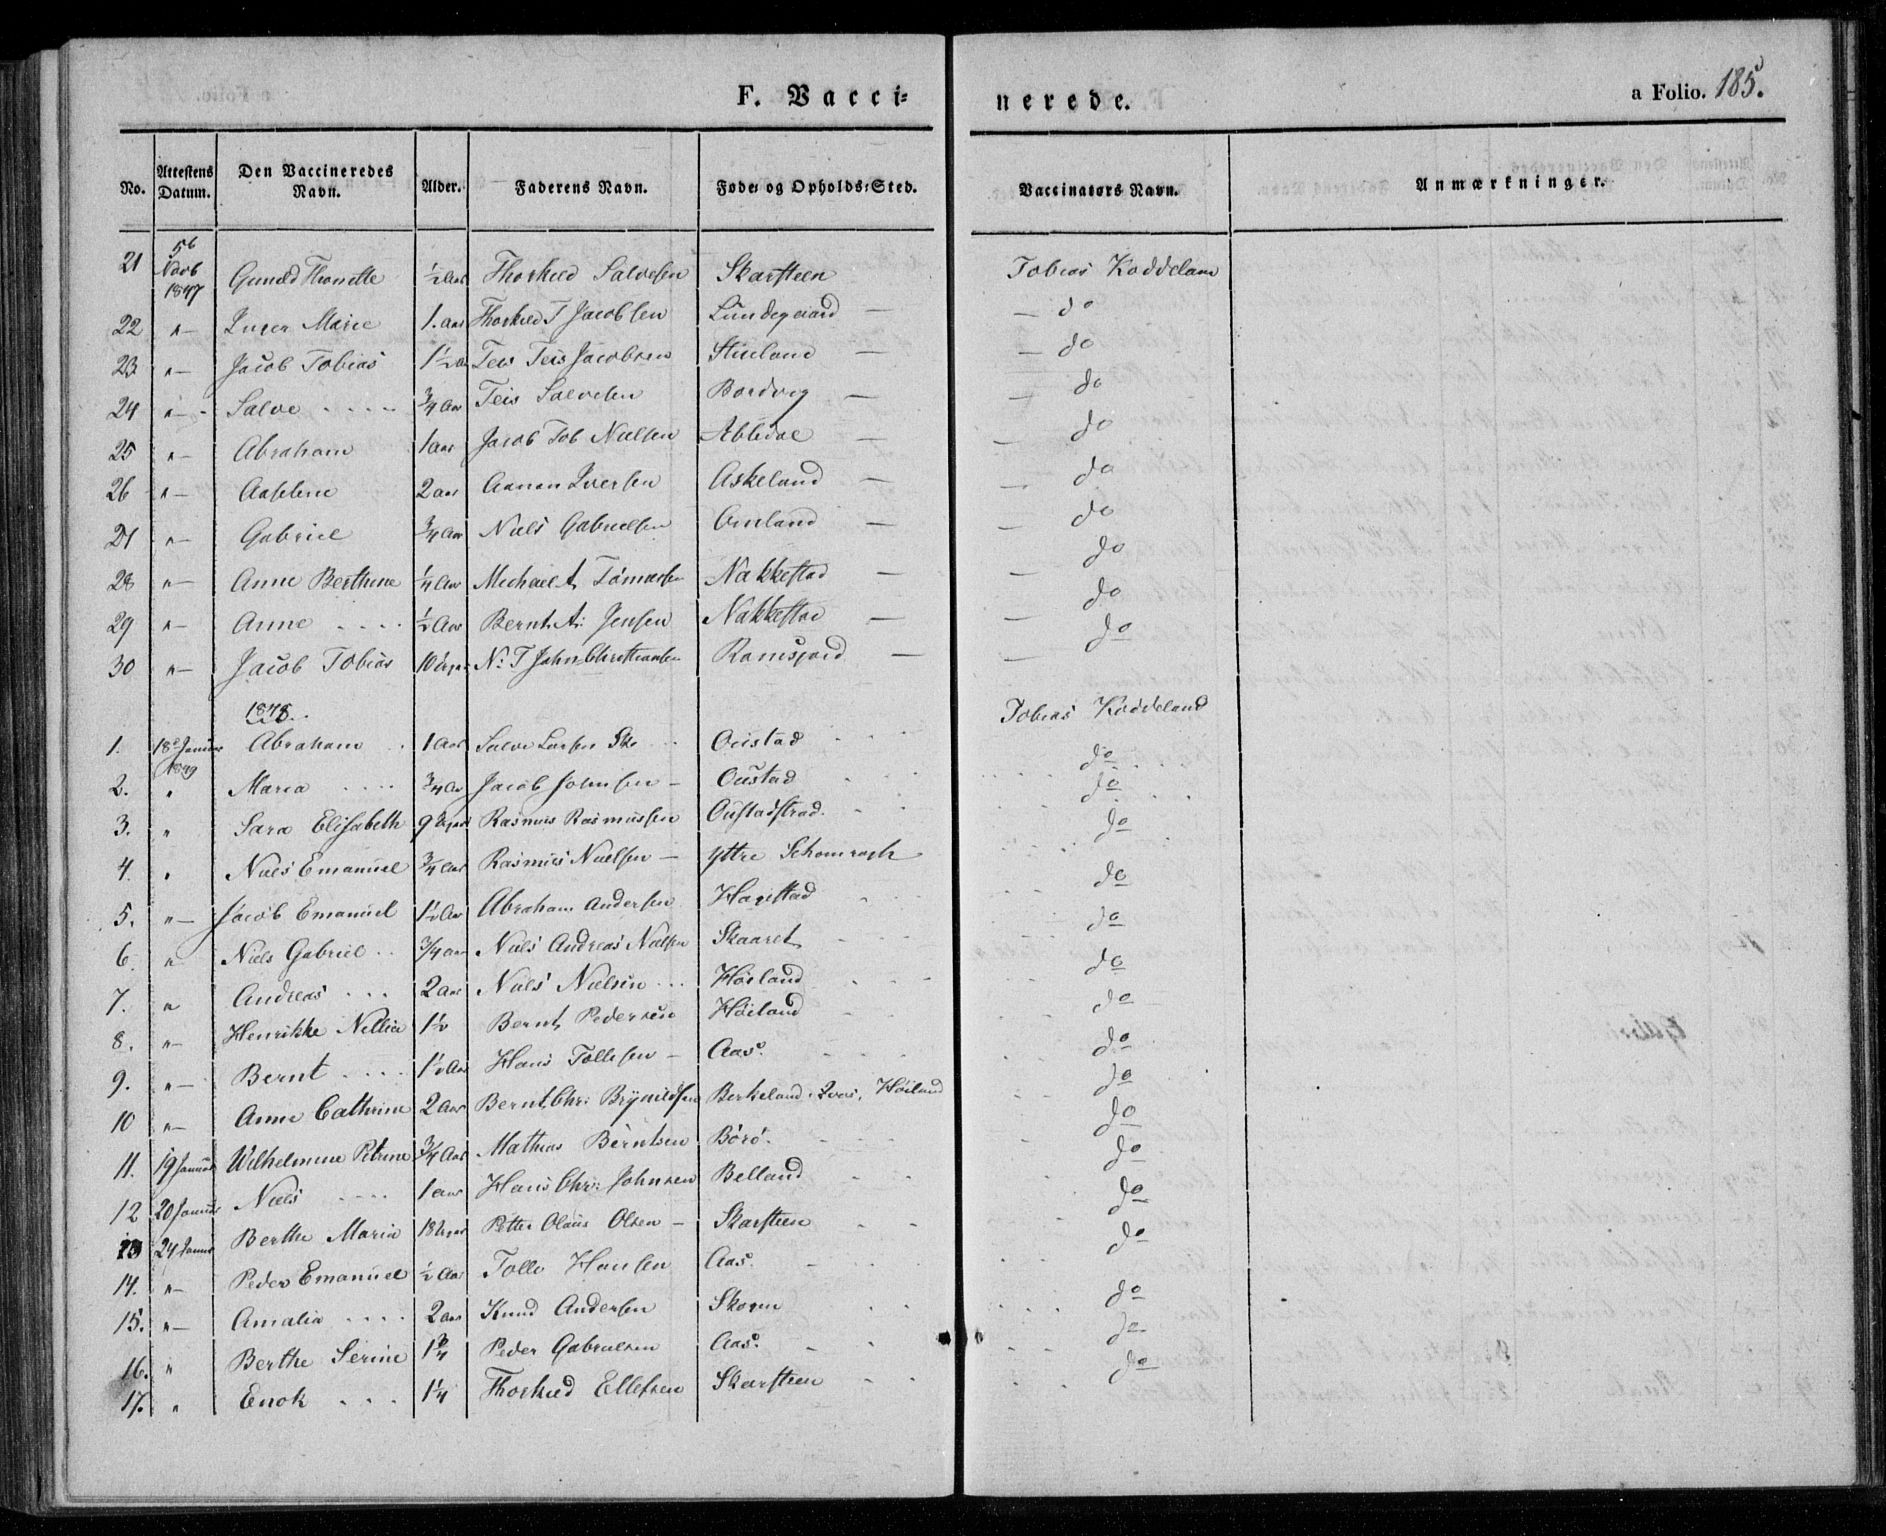 F. Vaccinerede.
a Folio. 185.
No. | Attestens Datum. | Den Vaccineredes Navn. | Alder. | Faderens Navn. | Føde- og Opholds-Sted. | Vaccinators Navn. | Anmærkninger.
21 | 5te Novb 1847 | Gunild Thonette | 1/2 Aar | Thorkild Salvesen | Skarsteen | Tobias Koddeland
22 | "— | Inger Marie | 1. aar | Thorkild T Jacobsen | Lundegaard — | — do
23 | "— | Jacob Tobias | 1 1/2 | Teis Jacobsen | — | — do
24 | "— | Salve | 3/4 Aar | Teis Salvesen | Bordvig — | — do
25 | "— | Abraham | 1 aar | Jacob Tob Nielsen | — | — do
26 | "— | Aaselene | 2 aar | Aanen Iversen | Askeland — | — do
27 | "— | Gabriel | 3/4 Aar | Niels Gabrielsen | Omland — | — do
28 | "— | Anne Berthine | 1/4 Aar | Michael A. | Nakkestad — | — do
29 | "— | Anne | 1/2 Aar | Bernt A: Jensen | Nakkestad — | — do
30 | "— | Jacob Tobias | 10 | N: T John Christiansen | — | — do
1848.
1. | 18de Januar 1849 | Abraham | 1 Aar | Salve Larsen | Oustad | Tobias Koddeland
2. | " | Maria | 3/4 Aar | Jacob Johnsen — | Oustad | do
3. | " | Sara Elisabeth | 9 | Rasmus Rasmussen | Oustadstrad. | do
4. | " | Niels Emanuel | 3/4 Aar | Rasmus Nielsen — | Yttre | do
5. | "— | Jacob Emanuel | 1 1/2 Aar | Abraham Andersen | Hanstad | do
6. | " | Niels Gabriel | 3/4 aar | Niels Andreas Nielsen | Skaaret | do
7. | " | Andreas | 2 aar | Niels Nielsen | Høiland | do
8. | "— | Henrikke Nillia | 1 1/2 | Bernt Pedersen | Høiland | do
9. | "— | Bernt | 1 1/2 Aar | Hans Tollefsen — | Aas. | do
10 | "— | Anne Cathrine | 2 Aar | Bernt Chr: Brynildsen | Birkeland, Høiland | do
11. | 19 Januar | Wilhelmine Petrine | 3/4 Aar | Mathias Berntsen | Børø. | do
12 | 20 Januar | Niels | 1 aar | Hans Chr: Johnsen | Belland | do
13 | 24 Januar | Berthe Maria | 18 | Petter Olaus Olsen — | Skarsteen | do
14. | "— | Peder Emanuel | 1/2 Aar | Tolle Hansen | Aas. | do
15. | "— | Amalia | 2 aar | Knud Andersen | Skoven | do
16. | " | Berthe Serine | 1 3/4 | Peder Gabrielsen | Aas. | do
17. | " | Enok | 1 1/4 | Thorkild Ellefsen | Skarsteen | do